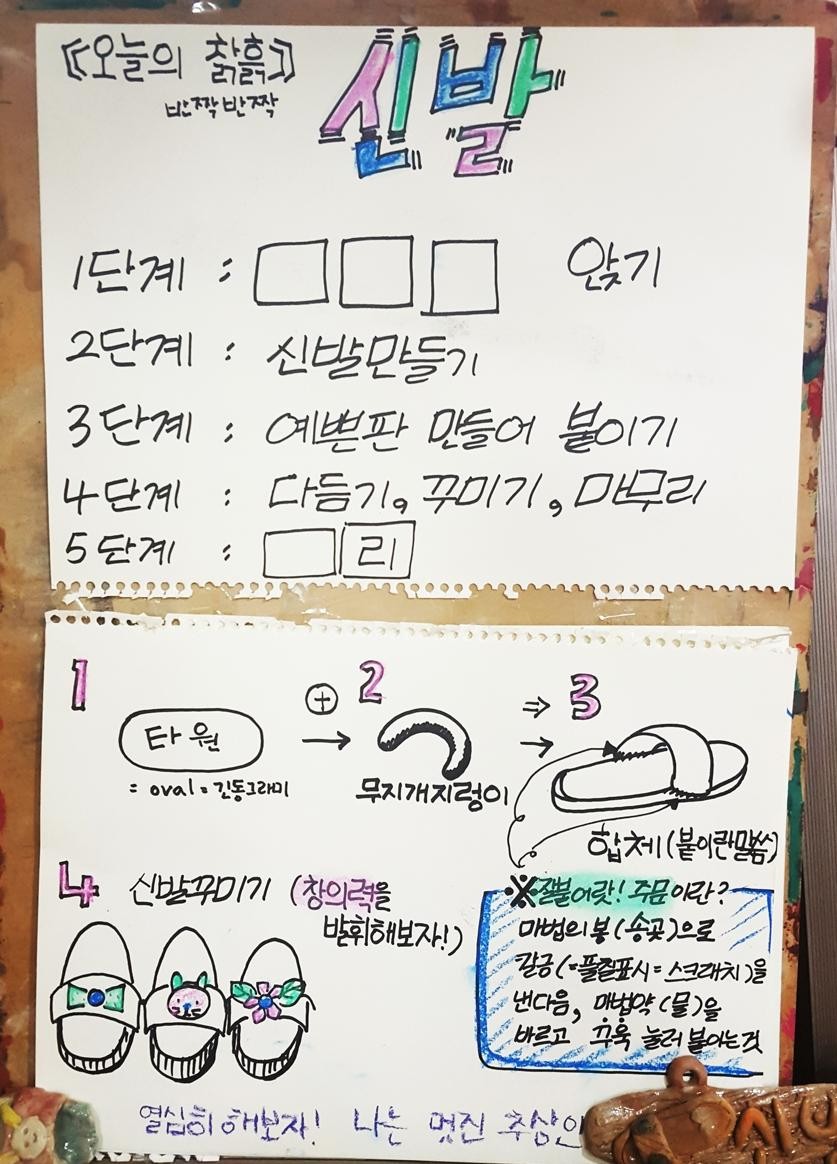 【오늘의 찰흙】
반짝반짝
신발
1단계 : □□□ 앉기
2단계 : 신발만들기
3단계 : 예쁜판 만들어 붙이기
4단계 : 다듬기, 꾸미기, 마무리
5단계 : □리
1 ⊕ 2 ⇒ 3
타원 → →
= oval = 긴동그래미
무지개지렁이
합체(붙이란말씀)
4 신발꾸미기 (창의력을
발휘해보자!)
※잘붙어랏! 주문이란?
마법의봉(송곳)으로
갈금(=풀질표시=스크래치)을
낸다음, 마법약(물)을
바르고 꾸욱 눌러 붙이는것
열심히 해보자! 나는 멋진 추상인